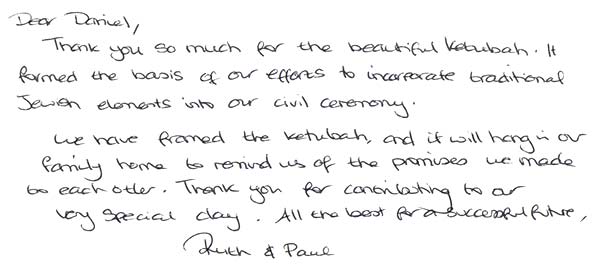 Dear Daniel,
Thank you so much for the beautiful Ketubah. It
formed the basis of our efforts to incorporate traditional
Jewish elements into our civil ceremony.
We have framed the Ketubah, and it will hang in our
family home to remind us of the promises we made
to each other. Thank you for contributing to our
very special day. All the best for a successful future,
Ruth & Paul